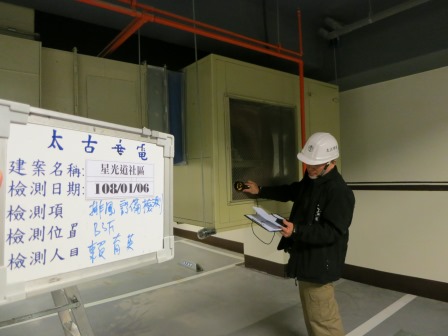 太古垂電
建案名稱: 星光道社區
檢測日期: 108/01/06
檢測項 排風設備檢測
檢測位置 B5F
檢測人目